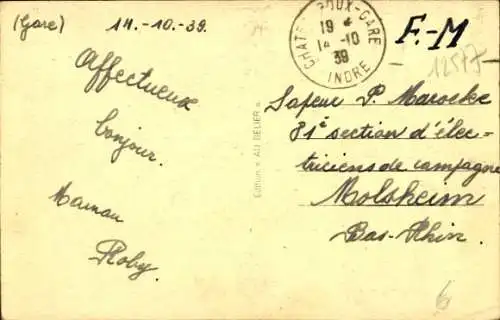 (Gare) 14.-10-39.
Affectueux
bonjour.
Maman
Roby.
CHATEAUROUX-GARE
19 *
14 -10
39
INDRE
F.-M
12577
Sapeur P. Marocke
81e section d'élec-
triciens de campagne
Molsheim
Bas-Rhin.
Edition « AU BELIER »
6